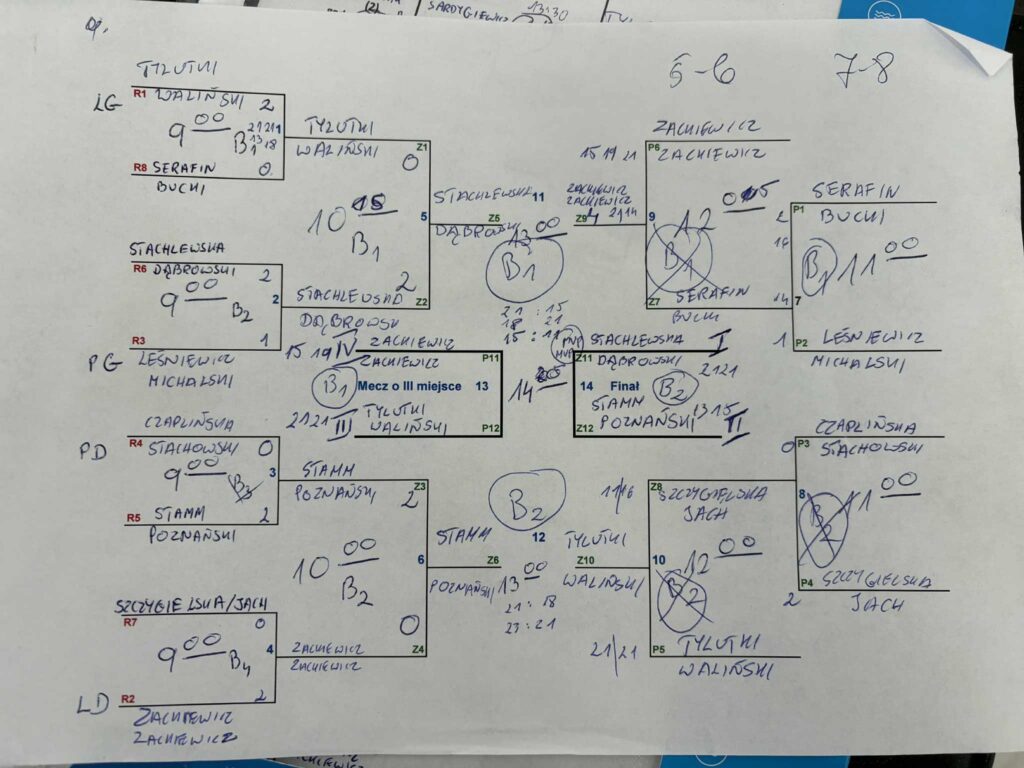 SARDYGIEWICZ
13:30
5-6
7-8
TYLUTKI
R1
WALIŃSKI
2
LG
9 00
B1
2121
13 18
1
R8
SERAFIN
0
BUCKI
TYLUTKI
WALIŃSKI
Z1
0
10 15
B1
5
STACHLEWSKA
11
Z5
DĄBROWSKI
13 00
B1
21 : 15
18 21
15 : 11
STACHLEWSKA
R6
DĄBROWSKI
2
9 00
B2
2
R3
1
PG
LEŚNIEWICZ
MICHALSKI
2
STACHLEWSKA
Z2
DĄBROWSKI
15 19 21
ZACKIEWICZ
P6
ZACKIEWICZ
ZACKIEWICZ
ZACKIEWICZ
Z9
21 14
9
12
B1
Z7
SERAFIN
BUCKI
SERAFIN
P1
BUCKI
2
B1
11 00
7
1
P2
LEŚNIEWICZ
MICHALSKI
15 19
IV
ZACKIEWICZ
ZACKIEWICZ
P11
B1
Mecz o III miejsce
13
2121
III
TYLUTKI
WALIŃSKI
P12
14
Z11
STACHLEWSKA
DĄBROWSKI
I
2121
14
Finał
B2
STAMM
Z12
POZNAŃSKI
13 15
II
CZAPLIŃSKA
PD
R4
STACHOWSKI
0
9 00
B3
3
R5
STAMM
2
POZNAŃSKI
STAMM
POZNAŃSKI
Z3
2
10 00
B2
6
STAMM
POZNAŃSKI
Z6
B2
12
13 00
21 : 18
23 : 21
SZCZYGIELSKA/JACH
R7
0
9 00
B4
4
LD
R2
2
ZACKIEWICZ
ZACKIEWICZ
0
ZACKIEWICZ
ZACKIEWICZ
Z4
11/16
Z8
SZCZYGIELSKA
JACH
TYLUTKI
Z10
WALIŃSKI
10
12 00
B2
21/21
P5
TYLUTKI
WALIŃSKI
0
P3
CZAPLIŃSKA
STACHOWSKI
8
B2
11 00
P4
SZCZYGIELSKA
2
JACH